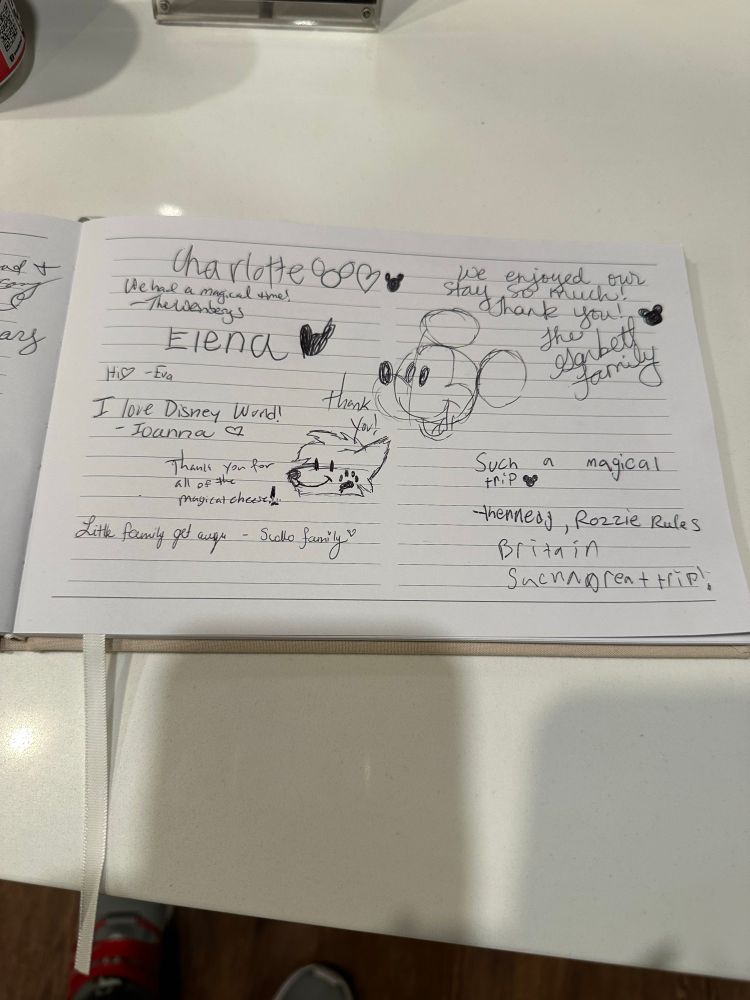 Charlotte
We had a magical time!
- The Wenbergs
Elena
Hi - Eva
I love Disney World!
- Ioanna
Thank
You!
Thank you for
all of the
magical cheese!
Little family get away - family
We enjoyed our
stay so much!
Thank you!
The
Family
Such a magical
trip
Rozzie Rules
Britain
Such A great trip!